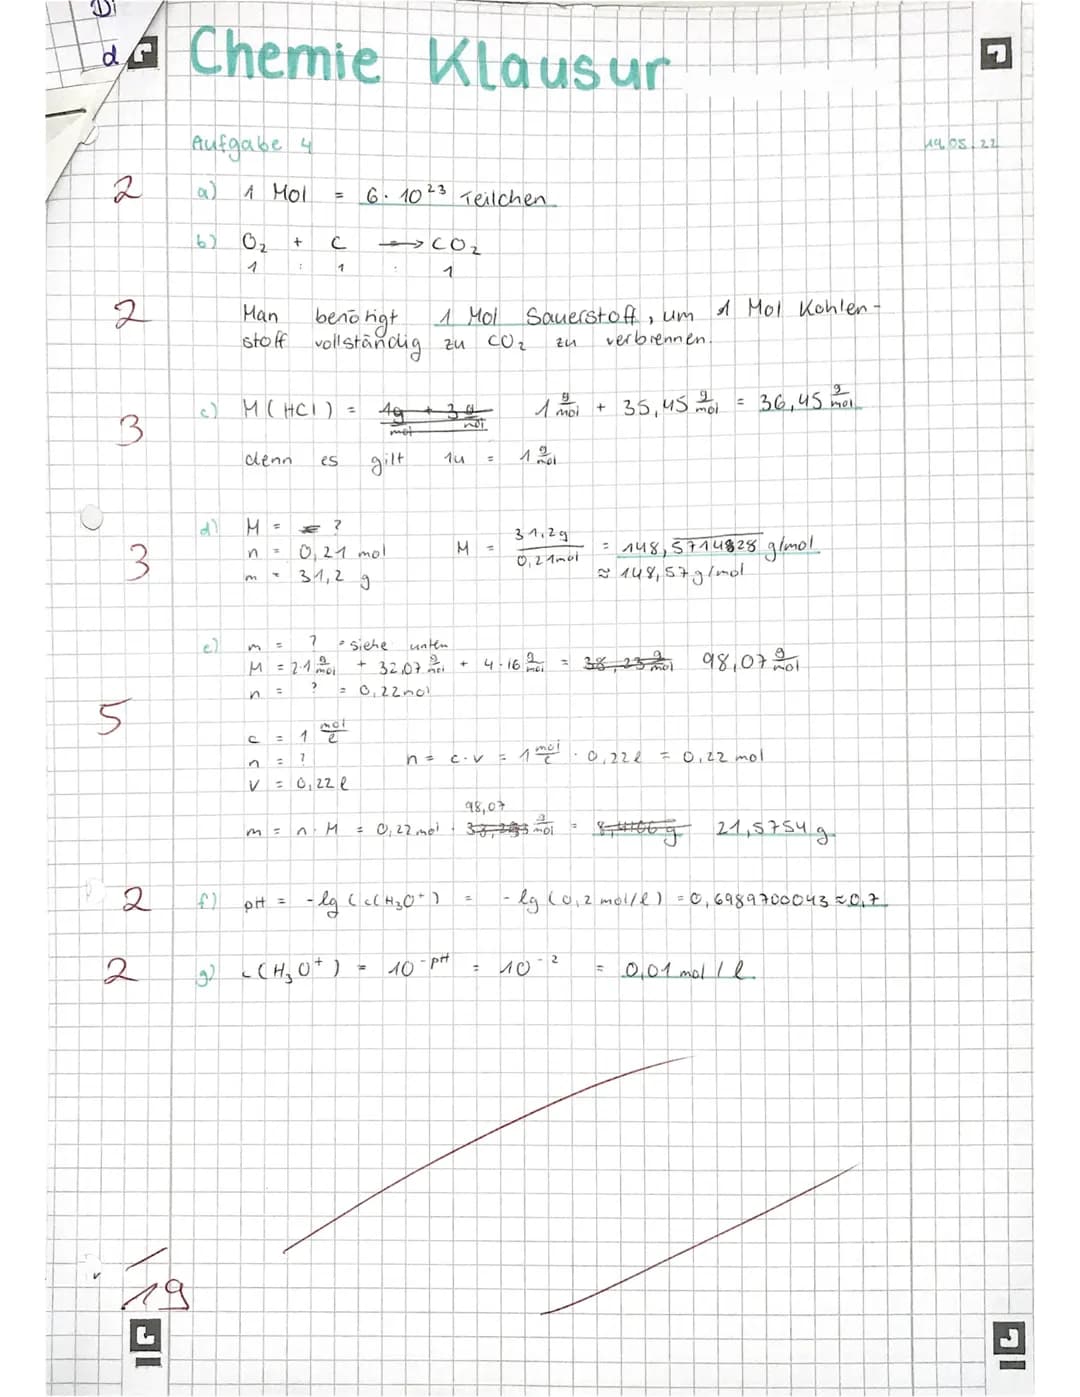 Di
d
Chemie Klausur
Aufgabe 4
19.05.22
2 a) 1 Mol = 6 · 10²³ Teilchen
b) O₂ + C → CO₂
1 : 1 : 1
2 Man benötigt 1 Mol Sauerstoff, um 1 Mol Kohlen-
stoff vollständig zu CO₂ zu verbrennen.
3 c) M(HCl) = 1 g/mol + 35,45 g/mol = 36,45 g/mol
denn es gilt 1u = 1 g/mol
d) M = ?
n = 0,21 mol
3 m = 31,2 g
M = 31,2g / 0,21mol = 148,5714828 g/mol
≈ 148,57g/mol
e) m = ? • siehe unten
M = 2·1 g/mol + 32,07 g/mol + 4·16 g/mol = 38,23 g/mol 98,07 g/mol
n = ? = 0,22mol
5
c = 1 mol/l
n = ?
V = 0,22 l
n = c·v = 1 mol/l · 0,22l = 0,22 mol
98,07
m = n · M = 0,22mol · g/mol = 21,5754 g
2 f) pH = -lg(c(H₃O⁺) = -lg(0,2 mol/l) = 0,6989700043 ≈ 0,7
2 g) c(H₃O⁺) = 10^-pH = 10^-2 = 0,01 mol / l
/19